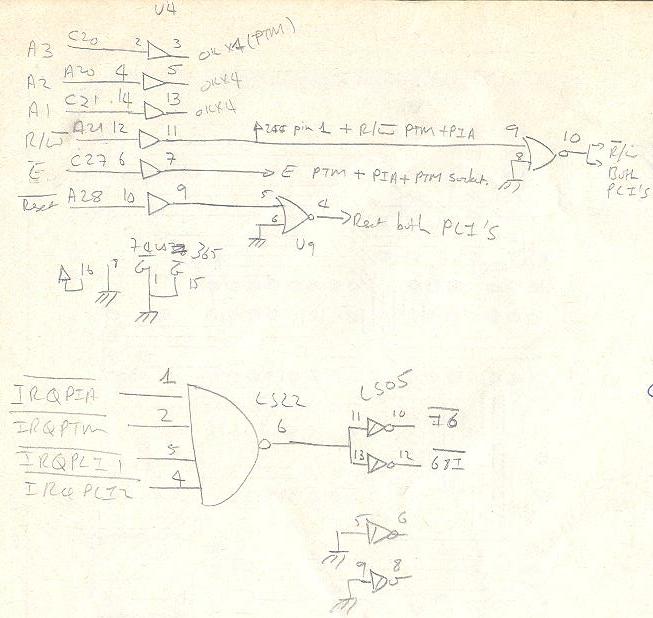 U4
A3 C20 2 3 OK x4 (PTM)
A2 A20 4 5 OK x4
A1 C21 14 13 OK x4
R/W A21 12 11 pin 1 + R/W PTM + PIA 9 10 R/W
8 Both
PLI'S
E C27 6 7 E PTM + PIA + PTM socket.
Reset A28 10 9 5 4 Reset both PLI'S
6
U9
365
16 8 G G
1 15
IRQPIA 1
IRQPTM 2
IRQPLI1 5
IRQPLI2 4
LS22 6
LS05
11 10 I6
13 12 68I
5 6
9 8